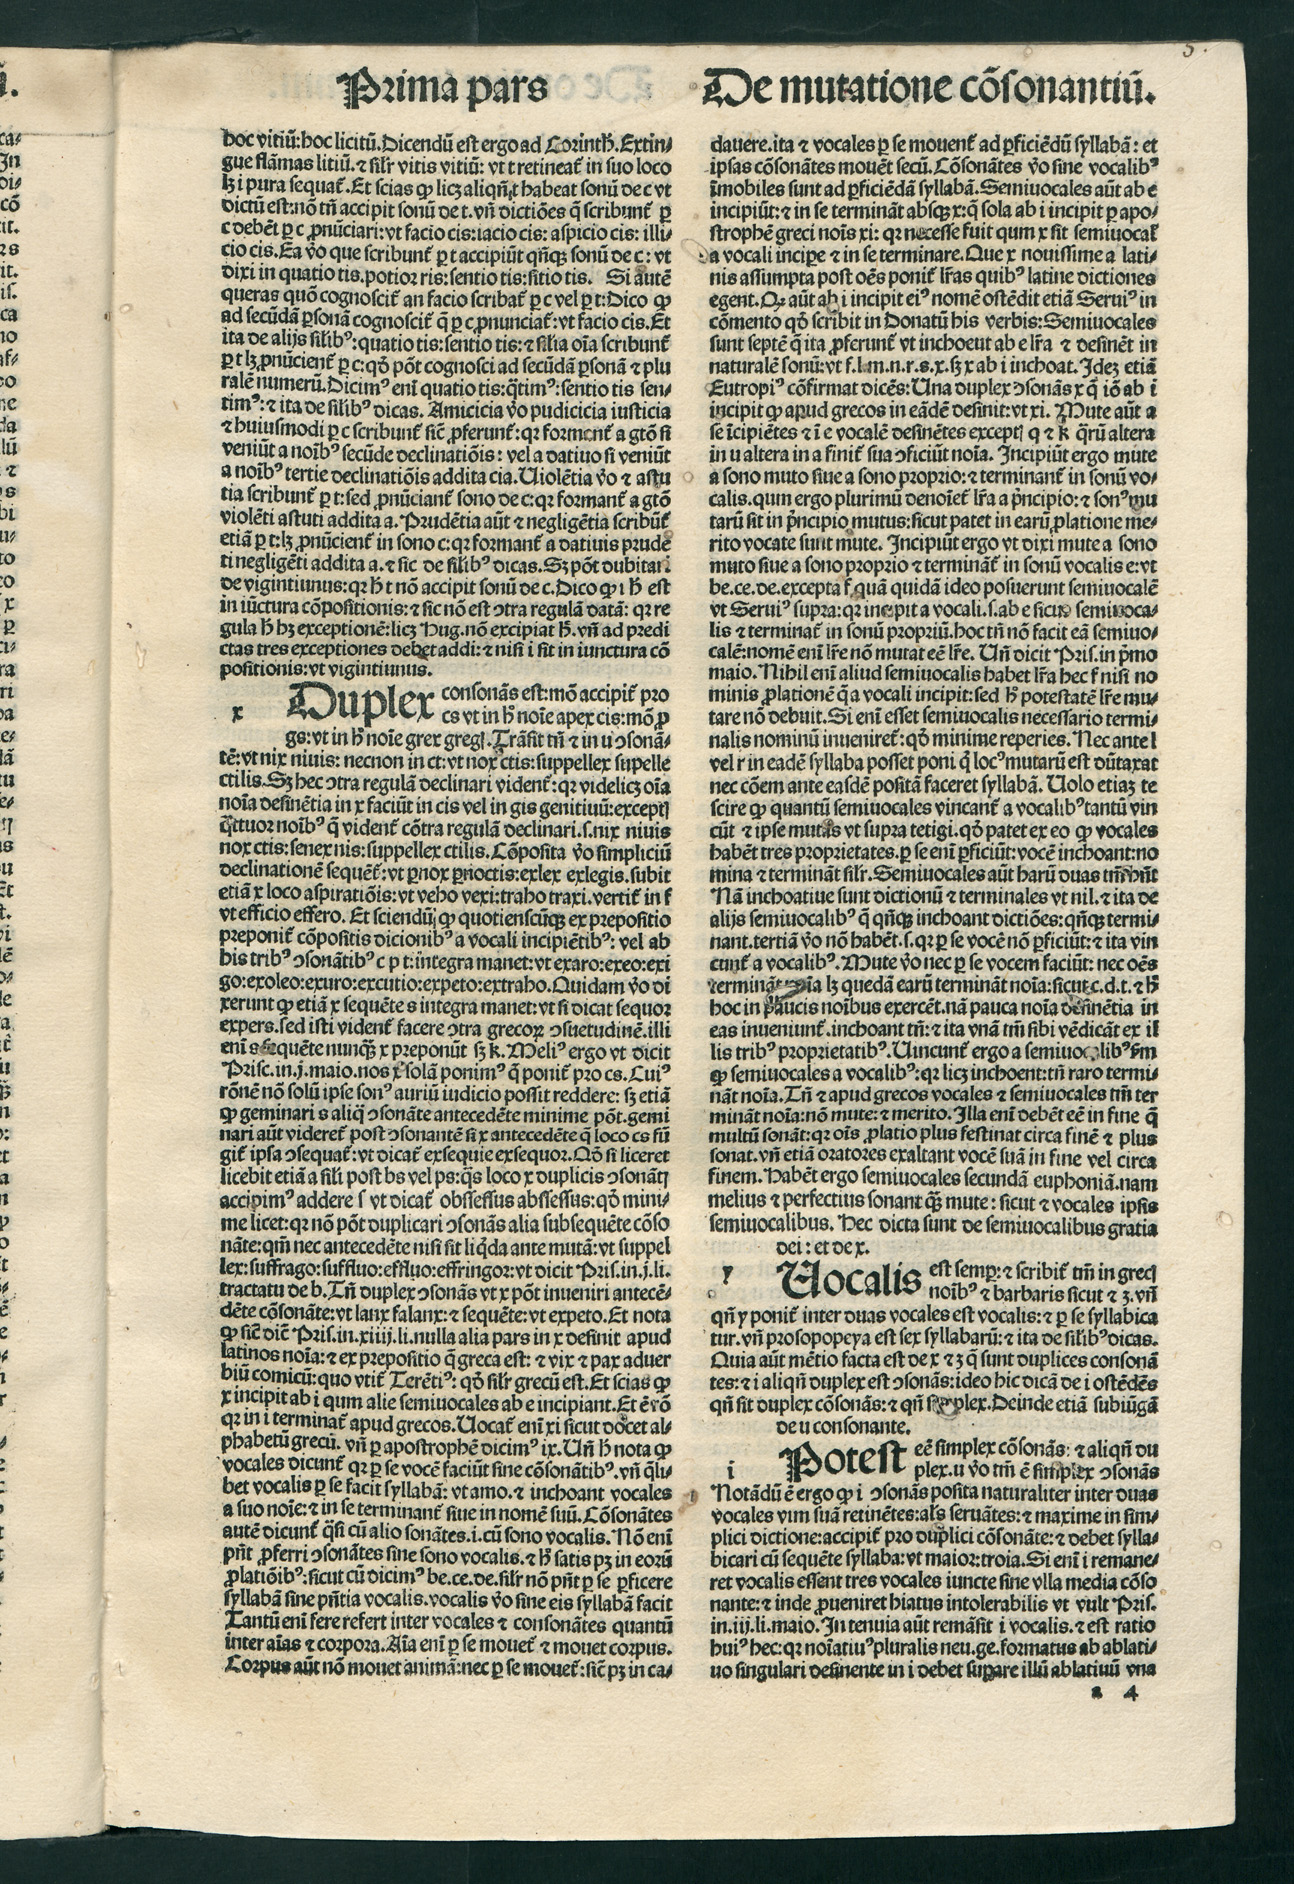 5.
Prima pars
De mutatione cõsonantiũ.
hoc vitiũ: hoc licitũ. Dicendũ est ergo ad Corinth. Extin⸗
gue flãmas litiũ. ⁊ silr vitis vitiũ: vt t retineat in suo loco
lꝫ i pura sequat̃. Et scias ꝙ licꝫ aliqñ t habeat sonũ de c vt
dictũ est: nõ tñ accipit sonũ de t. vñ dictiões q̃ scribunt̃ ꝑ
c debẽt ꝑ c ꝓnũciari: vt facio cis: iacio cis: aspicio cis: illi⸗
cio cis. Ea ṽo que scribunt̃ ꝑ t accipiũt qñqꝫ sonũ de c: vt
dixi in quatio tis. potior ris: sentio tis: sitio tis. Si autẽ
queras quõ cognoscit̃ an facio scribat̃ ꝑ c vel ꝑ t: Dico ꝙ
ad secũdã ꝑsonã cognoscit̃ q̃ ꝑ c ꝓnunciat̃: vt facio cis. Et
ita de alijs silibꝰ: quatio tis: sentio tis: ⁊ silia oĩa scribunt̃
ꝑ t lꝫ ꝓnũcient̃ ꝑ c: qď põt cognosci ad secũdã ꝑsonã ⁊ plu
ralẽ numerũ. Dicimꝰ enĩ quatio tis: q̃timꝰ: sentio tis sen⸗
timꝰ: ⁊ ita de silibꝰ dicas. Amicicia ṽo pudicicia iusticia
⁊ huiusmodi ꝑ c scribunt̃ sic̃ ꝓferunt̃: qr forment̃ a gtõ si
veniũt a noĩbꝰ secũde declinatiõis: vel a datiuo si veniũt
a noĩbꝰ tertie declinatiõis addita cia. Uiolẽtia ṽo ⁊ astu
tia scribunt̃ ꝑ t: sed ꝓnũciant̃ sono de c: qr formant̃ a gtõ
violẽti astuti addita a. Prudẽtia aũt ⁊ negligẽtia scribũt̃
etiã ꝑ t: lꝫ ꝓnũcient̃ in sono c: qr formant̃ a datiuis prudẽ
ti negligẽti addita a. ⁊ sic de silibꝰ dicas. Sꝫ põt dubitari
de vigintiunus: qr h̃ t nõ accipit sonũ de c. Dico ꝙ i h̃ est
in iũctura cõpositionis: ⁊ sic nõ est ↄtra regulã datã: qr re
gula h̃ hꝫ exceptionẽ: licꝫ Hug. nõ excipiat h̃. vñ ad predi
ctas tres exceptiones debet addi: ⁊ nisi i sit in iunctura cõ
positionis: vt vigintiunus.
x Duplex consonãs est: mõ accipit̃ pro
cs vt in h̃ noĩe apex cis: mõ ꝓ
gs: vt in h̃ noĩe grex gregꝭ. Trãsit tñ ⁊ in u ↄsonã⸗
tẽ: vt nix niuis: necnon in ct: vt nox ctis: suppellex supelle
ctilis. Sꝫ hec ↄtra regulã declinari vident̃: qr videlicꝫ oĩa
noĩa desinẽtia in x faciũt in cis vel in gis genitiuũ: exceptꝭ
q̃ttuor noĩbꝰ q̃ vident̃ cõtra regulã declinari. s. nix niuis
nox ctis: senex nis: suppellex ctilis. Cõposita ṽo simpliciũ
declinationẽ sequẽt̃: vt ꝑnox ꝑnoctis: exlex exlegis. subit
etiã x loco aspiratiõis: vt veho vexi: traho traxi. vertit̃ in f
vt efficio effero. Et sciendũ ꝙ quotienscũqꝫ ex prepositio
preponit̃ cõpositis dicionibꝰ a vocali incipiẽtibꝰ: vel ab
his tribꝰ ↄsonãtibꝰ c p t: integra manet: vt exaro: exeo: exi
go: exoleo: exuro: excutio: expeto: extraho. Quidam ṽo di
xerunt ꝙ etiã x sequẽte s integra manet: vt si dicat sequor
expers. sed isti vident̃ facere ↄtra grecoꝝ ↄsuetudinẽ. illi
enĩ s sequẽte nunqꝫ̃ x preponũt sꝫ k. Meliꝰ ergo vt dicit
Prisc. in. j. maio. nos x solã ponimꝰ q̃ ponit̃ pro cs. Cuiꝰ
rõnẽ nõ solũ ipse sonꝰ auriũ iudicio possit reddere: sꝫ etiã
ꝙ geminari s aliq̃ ↄsonãte antecedẽte minime põt. gemi
nari aũt videret̃ post ↄsonantẽ si x antecedẽte q̃ loco cs fũ
git̃ ipsa ↄsequat̃: vt dicat̃ exsequie exsequor. Qõ si liceret
licebit etiã a sili post bs vel ps: q̃s loco x duplicis ↄsonãtꝭ
accipimꝰ addere s vt dicat̃ obssessus abssessus: qď mini⸗
me licet: qr nõ põt duplicari ↄsonãs alia subsequẽte cõso
nãte: qm̃ nec antecedẽte nisi sit liq̃da ante mutã: vt suppel
lex: suffrago: suffluo: effluo: effringor: vt dicit Pris. in. j. li.
tractatu de b. Tñ duplex ↄsonãs vt x põt inueniri antecẽ⸗
dẽte cõsonãte: vt lanx falanx: ⁊ sequẽte: vt expeto. Et nota
ꝙ sic̃ dic̃ Pris. in. xiiij. li. nulla alia pars in x desinit apud
latinos noĩa: ⁊ ex prepositio q̃ greca est: ⁊ vix ⁊ pax aduer
biũ comicũ: quo vtit̃ Terẽtiꝰ: qď silr grecũ est. Et scias ꝙ
x incipit ab i qum alie semiuocales ab e incipiant. Et ẽ rõ
qr in i terminat̃ apud grecos. Uocat̃ enĩ xi sicut docet al⸗
phabetũ grecũ. vñ ꝑ apostrophẽ dicimꝰ ix. Uñ h̃ nota ꝙ
vocales dicunt̃ qr ꝑ se vocẽ faciũt sine cõsonãtibꝰ. vñ q̃li⸗
bet vocalis ꝑ se facit syllabã: vt amo. ⁊ inchoant vocales
a suo noĩe: ⁊ in se terminant̃ siue in nomẽ suũ. Cõsonãtes
autẽ dicunt̃ q̃si cũ alio sonãtes. i. cũ sono vocalis. Nõ enĩ
pñt ꝓferri ↄsonãtes sine sono vocalis. ⁊ h̃ satis pꝫ in eorũ
ꝓlatiõibꝰ: sicut cũ dicimꝰ be. ce. de. silr nõ pñt ꝑ se ꝑficere
syllabã sine pñtia vocalis. vocalis ṽo sine eis syllabã facit
Tantũ enĩ fere refert inter vocales ⁊ consonãtes quantũ
inter aĩas ⁊ corpora. Aĩa enĩ ꝑ se mouet̃ ⁊ mouet corpus.
Corpus aũt nõ mouet animã: nec ꝑ se mouet̃: sic̃ pꝫ in ca⸗
dauere. ita ⁊ vocales ꝑ se mouent̃ ad ꝑficiẽdũ syllabã: et
ipsas cõsonãtes mouẽt secũ. Cõsonãtes ṽo sine vocalibꝰ
ĩmobiles sunt ad ꝑficiẽdã syllabã. Semiuocales aũt ab e
incipiũt: ⁊ in se terminãt absqꝫ x: q̃ sola ab i incipit ꝑ apo⸗
strophẽ greci noĩs xi: qr necesse fuit qum x sit semiuocal̃
a vocali incipe ⁊ in se terminare. Que x nouissime a lati⸗
nis assumpta post oẽs ponit̃ lr̃as quibꝰ latine dictiones
egent. Qꝫ aũt ab i incipit eiꝰ nomẽ ostẽdit etiã Seruiꝰ in
cõmento qď scribit in Donatũ his verbis: Semiuocales
sunt septẽ q̃ ita ꝓferunt̃ vt inchoent ab e lr̃a ⁊ desinẽt in
naturalẽ sonũ: vt f. l. m. n. r. s. x. sꝫ x ab i inchoat. Jdeꝫ etiã
Eutropiꝰ cõfirmat dicẽs: Una duplex ↄsonãs x q̃ iõ ab i
incipit ꝙ apud grecos in eãdẽ desinit: vt xi. Mute aũt a
se ĩcipiẽtes ⁊ ĩ e vocalẽ desinẽtes exceptꝭ q ⁊ k q̃rũ altera
in u altera in a finit̃ sua ↄficiũt noĩa. Incipiũt ergo mute
a sono muto siue a sono proprio: ⁊ terminant̃ in sonũ vo⸗
calis. qum ergo plurimũ denoĩet̃ lr̃a a p̃ncipio: ⁊ sonꝰ mu
tarũ sit in p̃ncipio mutus: sicut patet in earũ ꝓlatione me⸗
rito vocate sunt mute. Incipiũt ergo vt dixi mute a sono
muto siue a sono proprio ⁊ terminãt̃ in sonũ vocalis e: vt
be. ce. de. excepta f. quã quidã ideo posuerunt semiuocalẽ
vt Seruiꝰ supra: qr incipit a vocali. s. ab e sicut semiuoca⸗
lis ⁊ terminat̃ in sonũ propriũ. hoc tñ nõ facit eã semiuo⸗
calẽ: nomẽ enĩ lr̃e nõ mutat eẽ lr̃e. Uñ dicit Pris. in p̃mo
maio. Nihil enĩ aliud semiuocalis habet lr̃a hec f nisi no
minis ꝓlationẽ q̃ a vocali incipit: sed h̃ potestatẽ lr̃e mu⸗
tare nõ debuit. Si enĩ esset semiuocalis necessario termi⸗
nalis nominũ inueniret̃: qď minime reperies. Nec ante l
vel r in eadẽ syllaba posset poni q̃ locꝰ mutarũ est dũtaxat
nec cõem ante easdẽ positã faceret syllabã. Uolo etiaꝫ te
scire ꝙ quantũ semiuocales vincant̃ a vocalibꝰ tantũ vin
cũt ⁊ ipse mutas vt supra tetigi. qď patet ex eo ꝙ vocales
habẽt tres proprietates. ꝑ se enĩ ꝑficiũt: vocẽ inchoant: no
mina ⁊ terminãt silr. Semiuocales aũt harũ duas tm̃ hñt
Nã inchoatiue sunt dictionũ ⁊ terminales vt nil. ⁊ ita de
alijs semiuocalibꝰ q̃ qñqꝫ inchoant dictiões: qñqꝫ termi⸗
nant. tertiã ṽo nõ habẽt. s. qr ꝑ se vocẽ nõ ꝑficiũt: ⁊ ita vin
cunt̃ a vocalibꝰ. Mute ṽo nec ꝑ se vocem faciũt: nec oẽs
terminãt noĩa lꝫ quedã earũ terminãt noĩa: sicut c. d. t. ⁊ h̃
hoc in paucis noĩbus exercẽt. nã pauca noĩa desinẽtia in
eas inueniunt̃. inchoant tñ: ⁊ ita vnã tm̃ sibi vẽdicãt ex il
lis tribꝰ proprietatibꝰ. Uincunt̃ ergo a semiuocalibꝰ fm̃
ꝙ semiuocales a vocalibꝰ: qr licꝫ inchoent: tñ raro termi⸗
nãt noĩa. Tñ ⁊ apud grecos vocales ⁊ semiuocales tm̃ ter
minãt noĩa: nõ mute: ⁊ merito. Illa enĩ debẽt eẽ in fine q̃
multũ sonãt: qr oĩs ꝓlatio plus festinat circa finẽ ⁊ plus
sonat. vñ etiã oratores exaltant vocẽ suã in fine vel circa
finem. Habẽt ergo semiuocales secundã euphoniã. nam
melius ⁊ perfectius sonant qꝫ̃ mute: sicut ⁊ vocales ipsis
semiuocalibus. Hec dicta sunt de semiuocalibus gratia
dei: et de x.
y Uocalis est semꝑ: ⁊ scribit̃ tm̃ in grecꝭ
noĩbꝰ ⁊ barbaris sicut ⁊ z. vñ
qñ y ponit̃ inter duas vocales est vocalis: ⁊ ꝑ se syllabica
tur. vñ prosopopeya est sex syllabarũ: ⁊ ita de silibꝰ dicas.
Quia aũt mẽtio facta est de x ⁊ z q̃ sunt duplices consonã
tes: ⁊ i aliqñ duplex est ↄsonãs: ideo hic dicã de i ostẽdẽs
qñ sit duplex cõsonãs: ⁊ qñ simplex. Deinde etiã subiũgã
de u consonante.
i Potest eẽ simplex cõsonãs: ⁊ aliqñ du
plex. u ṽo tm̃ ẽ simplex ↄsonãs
Notãdũ ẽ ergo ꝙ i ↄsonãs posita naturaliter inter duas
vocales vim suã retinẽtes: al̃s seruãtes: ⁊ maxime in sim⸗
plici dictione: accipit̃ pro duplici cõsonãte: ⁊ debet sylla⸗
bicari cũ sequẽte syllaba: vt maior: troia. Si enĩ i remane⸗
ret vocalis essent tres vocales iuncte sine vlla media cõso
nante: ⁊ inde ꝓueniret hiatus intolerabilis vt vult Pris.
in. iij. li. maio. In tenuia aũt remãsit i vocalis. ⁊ est ratio
huiꝰ hec: qr noĩatiuꝰ pluralis neu. ge. formatus ab ablati⸗
uo singulari desinente in i debet suꝑare illũ ablatiuũ vna
a 4